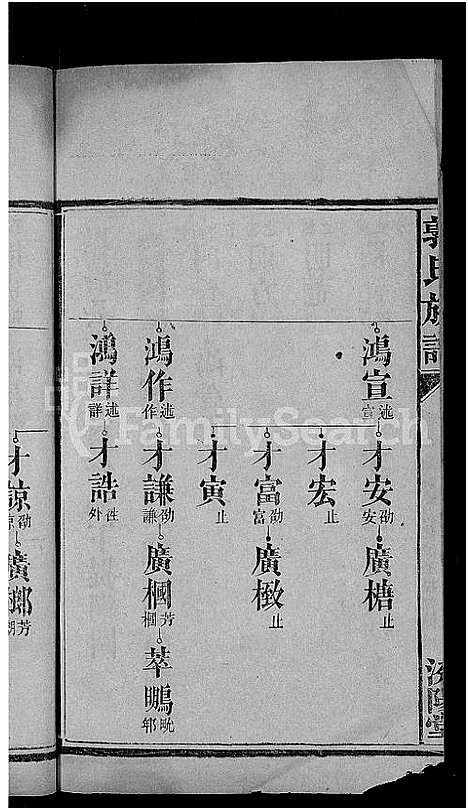 郭氏族譜
汾陽堂
鴻宣 述宣
才安 劭安
廣榶 止
才宏 止
才富 劭富
廣檄 止
才寅 止
鴻作 述作
才謙 劭謙
廣棝 芳棝
萃鵬 毗
鴻詳 述詳
才誥 徃外
才諒 劭諒
廣 芳
FamilySearch